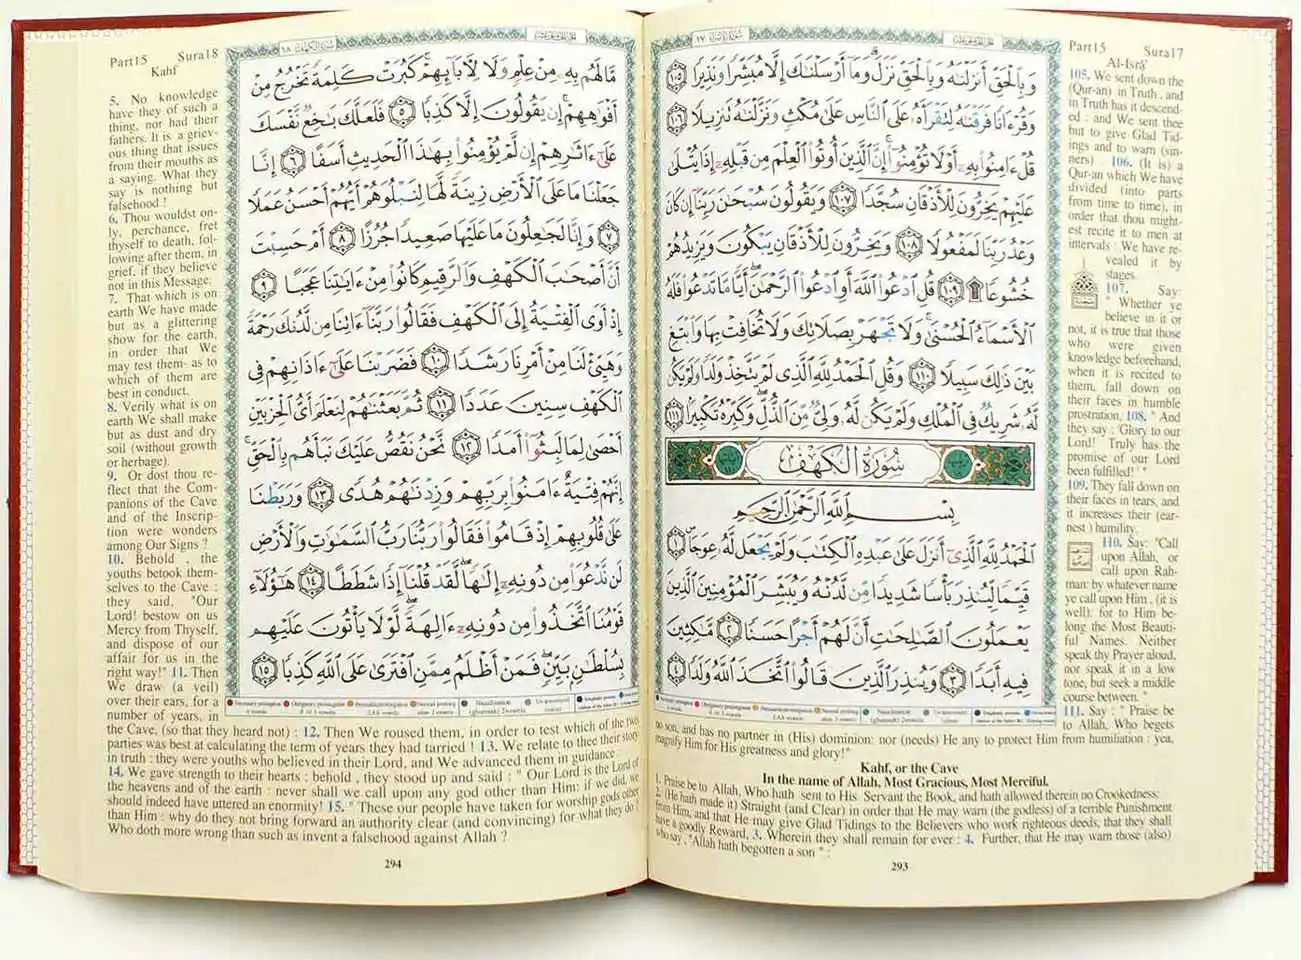 سورة الإسراء ١٧
Part15 Sura17
Al-Isrā'
وَبِالْحَقِّ أَنزَلْنَاهُ وَبِالْحَقِّ نَزَلَ وَمَا أَرْسَلْنَاكَ إِلَّا مُبَشِّرًا وَنَذِيرًا ١٠٥
وَقُرْءَانًا فَرَقْنَاهُ لِتَقْرَأَهُ عَلَى النَّاسِ عَلَى مُكْثٍ وَنَزَّلْنَاهُ تَنزِيلًا ١٠٦
قُلْ ءَامِنُوا بِهِ أَوْ لَا تُؤْمِنُوا إِنَّ الَّذِينَ أُوتُوا الْعِلْمَ مِن قَبْلِهِ إِذَا يُتْلَى
عَلَيْهِمْ يَخِرُّونَ لِلْأَذْقَانِ سُجَّدًا ١٠٧ وَيَقُولُونَ سُبْحَانَ رَبِّنَا إِن كَانَ
وَعْدُ رَبِّنَا لَمَفْعُولًا ١٠٨ وَيَخِرُّونَ لِلْأَذْقَانِ يَبْكُونَ وَيَزِيدُهُمْ
خُشُوعًا ۩ ١٠٩ قُلِ ادْعُوا اللَّهَ أَوِ ادْعُوا الرَّحْمَنَ أَيًّا مَّا تَدْعُوا فَلَهُ
الْأَسْمَاءُ الْحُسْنَى وَلَا تَجْهَرْ بِصَلَاتِكَ وَلَا تُخَافِتْ بِهَا وَابْتَغِ
بَيْنَ ذَلِكَ سَبِيلًا ١١٠ وَقُلِ الْحَمْدُ لِلَّهِ الَّذِي لَمْ يَتَّخِذْ وَلَدًا وَلَمْ يَكُن
لَّهُ شَرِيكٌ فِي الْمُلْكِ وَلَمْ يَكُن لَّهُ وَلِيٌّ مِّنَ الذُّلِّ وَكَبِّرْهُ تَكْبِيرًا ١١١
سُورَةُ الْكَهْفِ
بِسْمِ اللَّهِ الرَّحْمَنِ الرَّحِيمِ
الْحَمْدُ لِلَّهِ الَّذِي أَنزَلَ عَلَى عَبْدِهِ الْكِتَابَ وَلَمْ يَجْعَل لَّهُ عِوَجًا ١
قَيِّمًا لِّيُنذِرَ بَأْسًا شَدِيدًا مِّن لَّدُنْهُ وَيُبَشِّرَ الْمُؤْمِنِينَ الَّذِينَ
يَعْمَلُونَ الصَّالِحَاتِ أَنَّ لَهُمْ أَجْرًا حَسَنًا ٢ مَّاكِثِينَ
فِيهِ أَبَدًا ٣ وَيُنذِرَ الَّذِينَ قَالُوا اتَّخَذَ اللَّهُ وَلَدًا ٤
105. We sent down the
(Qur-an) in Truth, and
in Truth has it descend-
ed : and We sent thee
but to give Glad Tid-
ings and to warn (sin-
ners) . 106. (It is) a
Qur-an which We have
divided (into parts
from time to time), in
order that thou might-
est recite it to men at
intervals : We have re-
vealed it by
stages.
107. Say:
" Whether ye
believe in it or
not, it is true that those
who were given
knowledge beforehand,
when it is recited to
them, fall down on
their faces in humble
prostration, 108. " And
they say : 'Glory to our
Lord! Truly has the
promise of our Lord
been fulfilled!' "
109. They fall down on
their faces in tears, and
it increases their (ear-
nest ) humility.
110. Say: "Call
upon Allah, or
call upon Rah-
man: by whatever name
ye call upon Him , (it is
well): for to Him be-
long the Most Beauti-
ful Names. Neither
speak thy Prayer aloud,
nor speak it in a low
tone, but seek a middle
course between. "
111. Say : " Praise be
to Allah, Who begets
no son, and has no partner in (His) dominion: nor (needs) He any to protect Him from humiliation : yea,
magnify Him for His greatness and glory!"
Kahf, or the Cave
In the name of Allah, Most Gracious, Most Merciful.
1. Praise be to Allah, Who hath sent to His Servant the Book, and hath allowed therein no Crookedness:
2. (He hath made it) Straight (and Clear) in order that He may warn (the godless) of a terrible Punishment
from Him, and that He may give Glad Tidings to the Believers who work righteous deeds, that they shall
have a goodly Reward, 3. Wherein they shall remain for ever : 4. Further, that He may warn those (also)
who say , "Allah hath begotten a son " :
293
سورة الكهف ١٨
Part15 Sura18
Kahf
مَّا لَهُم بِهِ مِنْ عِلْمٍ وَلَا لِآبَائِهِمْ كَبُرَتْ كَلِمَةً تَخْرُجُ مِنْ
أَفْوَاهِهِمْ إِن يَقُولُونَ إِلَّا كَذِبًا ٥ فَلَعَلَّكَ بَاخِعٌ نَّفْسَكَ
عَلَى ءَاثَارِهِمْ إِن لَّمْ يُؤْمِنُوا بِهَذَا الْحَدِيثِ أَسَفًا ٦ إِنَّا
جَعَلْنَا مَا عَلَى الْأَرْضِ زِينَةً لَّهَا لِنَبْلُوَهُمْ أَيُّهُمْ أَحْسَنُ عَمَلًا
٧ وَإِنَّا لَجَاعِلُونَ مَا عَلَيْهَا صَعِيدًا جُرُزًا ٨ أَمْ حَسِبْتَ
أَنَّ أَصْحَابَ الْكَهْفِ وَالرَّقِيمِ كَانُوا مِنْ ءَايَاتِنَا عَجَبًا ٩
إِذْ أَوَى الْفِتْيَةُ إِلَى الْكَهْفِ فَقَالُوا رَبَّنَا ءَاتِنَا مِن لَّدُنكَ رَحْمَةً
وَهَيِّئْ لَنَا مِنْ أَمْرِنَا رَشَدًا ١٠ فَضَرَبْنَا عَلَى ءَاذَانِهِمْ فِي
الْكَهْفِ سِنِينَ عَدَدًا ١١ ثُمَّ بَعَثْنَاهُمْ لِنَعْلَمَ أَيُّ الْحِزْبَيْنِ
أَحْصَى لِمَا لَبِثُوا أَمَدًا ١٢ نَّحْنُ نَقُصُّ عَلَيْكَ نَبَأَهُم بِالْحَقِّ
إِنَّهُمْ فِتْيَةٌ ءَامَنُوا بِرَبِّهِمْ وَزِدْنَاهُمْ هُدًى ١٣ وَرَبَطْنَا
عَلَى قُلُوبِهِمْ إِذْ قَامُوا فَقَالُوا رَبُّنَا رَبُّ السَّمَاوَاتِ وَالْأَرْضِ
لَن نَّدْعُوَا مِن دُونِهِ إِلَهًا لَّقَدْ قُلْنَا إِذًا شَطَطًا ١٤ هَؤُلَاءِ
قَوْمُنَا اتَّخَذُوا مِن دُونِهِ ءَالِهَةً لَّوْلَا يَأْتُونَ عَلَيْهِم
بِسُلْطَانٍ بَيِّنٍ فَمَنْ أَظْلَمُ مِمَّنِ افْتَرَى عَلَى اللَّهِ كَذِبًا ١٥
5. No knowledge
have they of such a
thing, nor had their
fathers. It is a griev-
ous thing that issues
from their mouths as
a saying. What they
say is nothing but
falsehood !
6. Thou wouldst on-
ly, perchance, fret
thyself to death, fol-
lowing after them, in
grief, if they believe
not in this Message.
7. That which is on
earth We have made
but as a glittering
show for the earth,
in order that We
may test them- as to
which of them are
best in conduct.
8. Verily what is on
earth We shall make
but as dust and dry
soil (without growth
or herbage) .
9. Or dost thou re-
flect that the Com-
panions of the Cave
and of the Inscrip-
tion were wonders
among Our Signs ?
10. Behold , the
youths betook them-
selves to the Cave :
they said, "Our
Lord! bestow on us
Mercy from Thyself,
and dispose of our
affair for us in the
right way!" 11. Then
We draw (a veil)
over their ears, for a
number of years, in
the Cave, (so that they heard not) : 12. Then We roused them, in order to test which of the two
parties was best at calculating the term of years they had tarried ! 13. We relate to thee their story
in truth : they were youths who believed in their Lord, and We advanced them in guidance :
14. We gave strength to their hearts : behold , they stood up and said : " Our Lord is the Lord of
the heavens and of the earth : never shall we call upon any god other than Him: if we did, we
should indeed have uttered an enormity! 15. " These our people have taken for worship gods other
than Him : why do they not bring forward an authority clear (and convincing) for what they do ?
Who doth more wrong than such as invent a falsehood against Allah ?
294